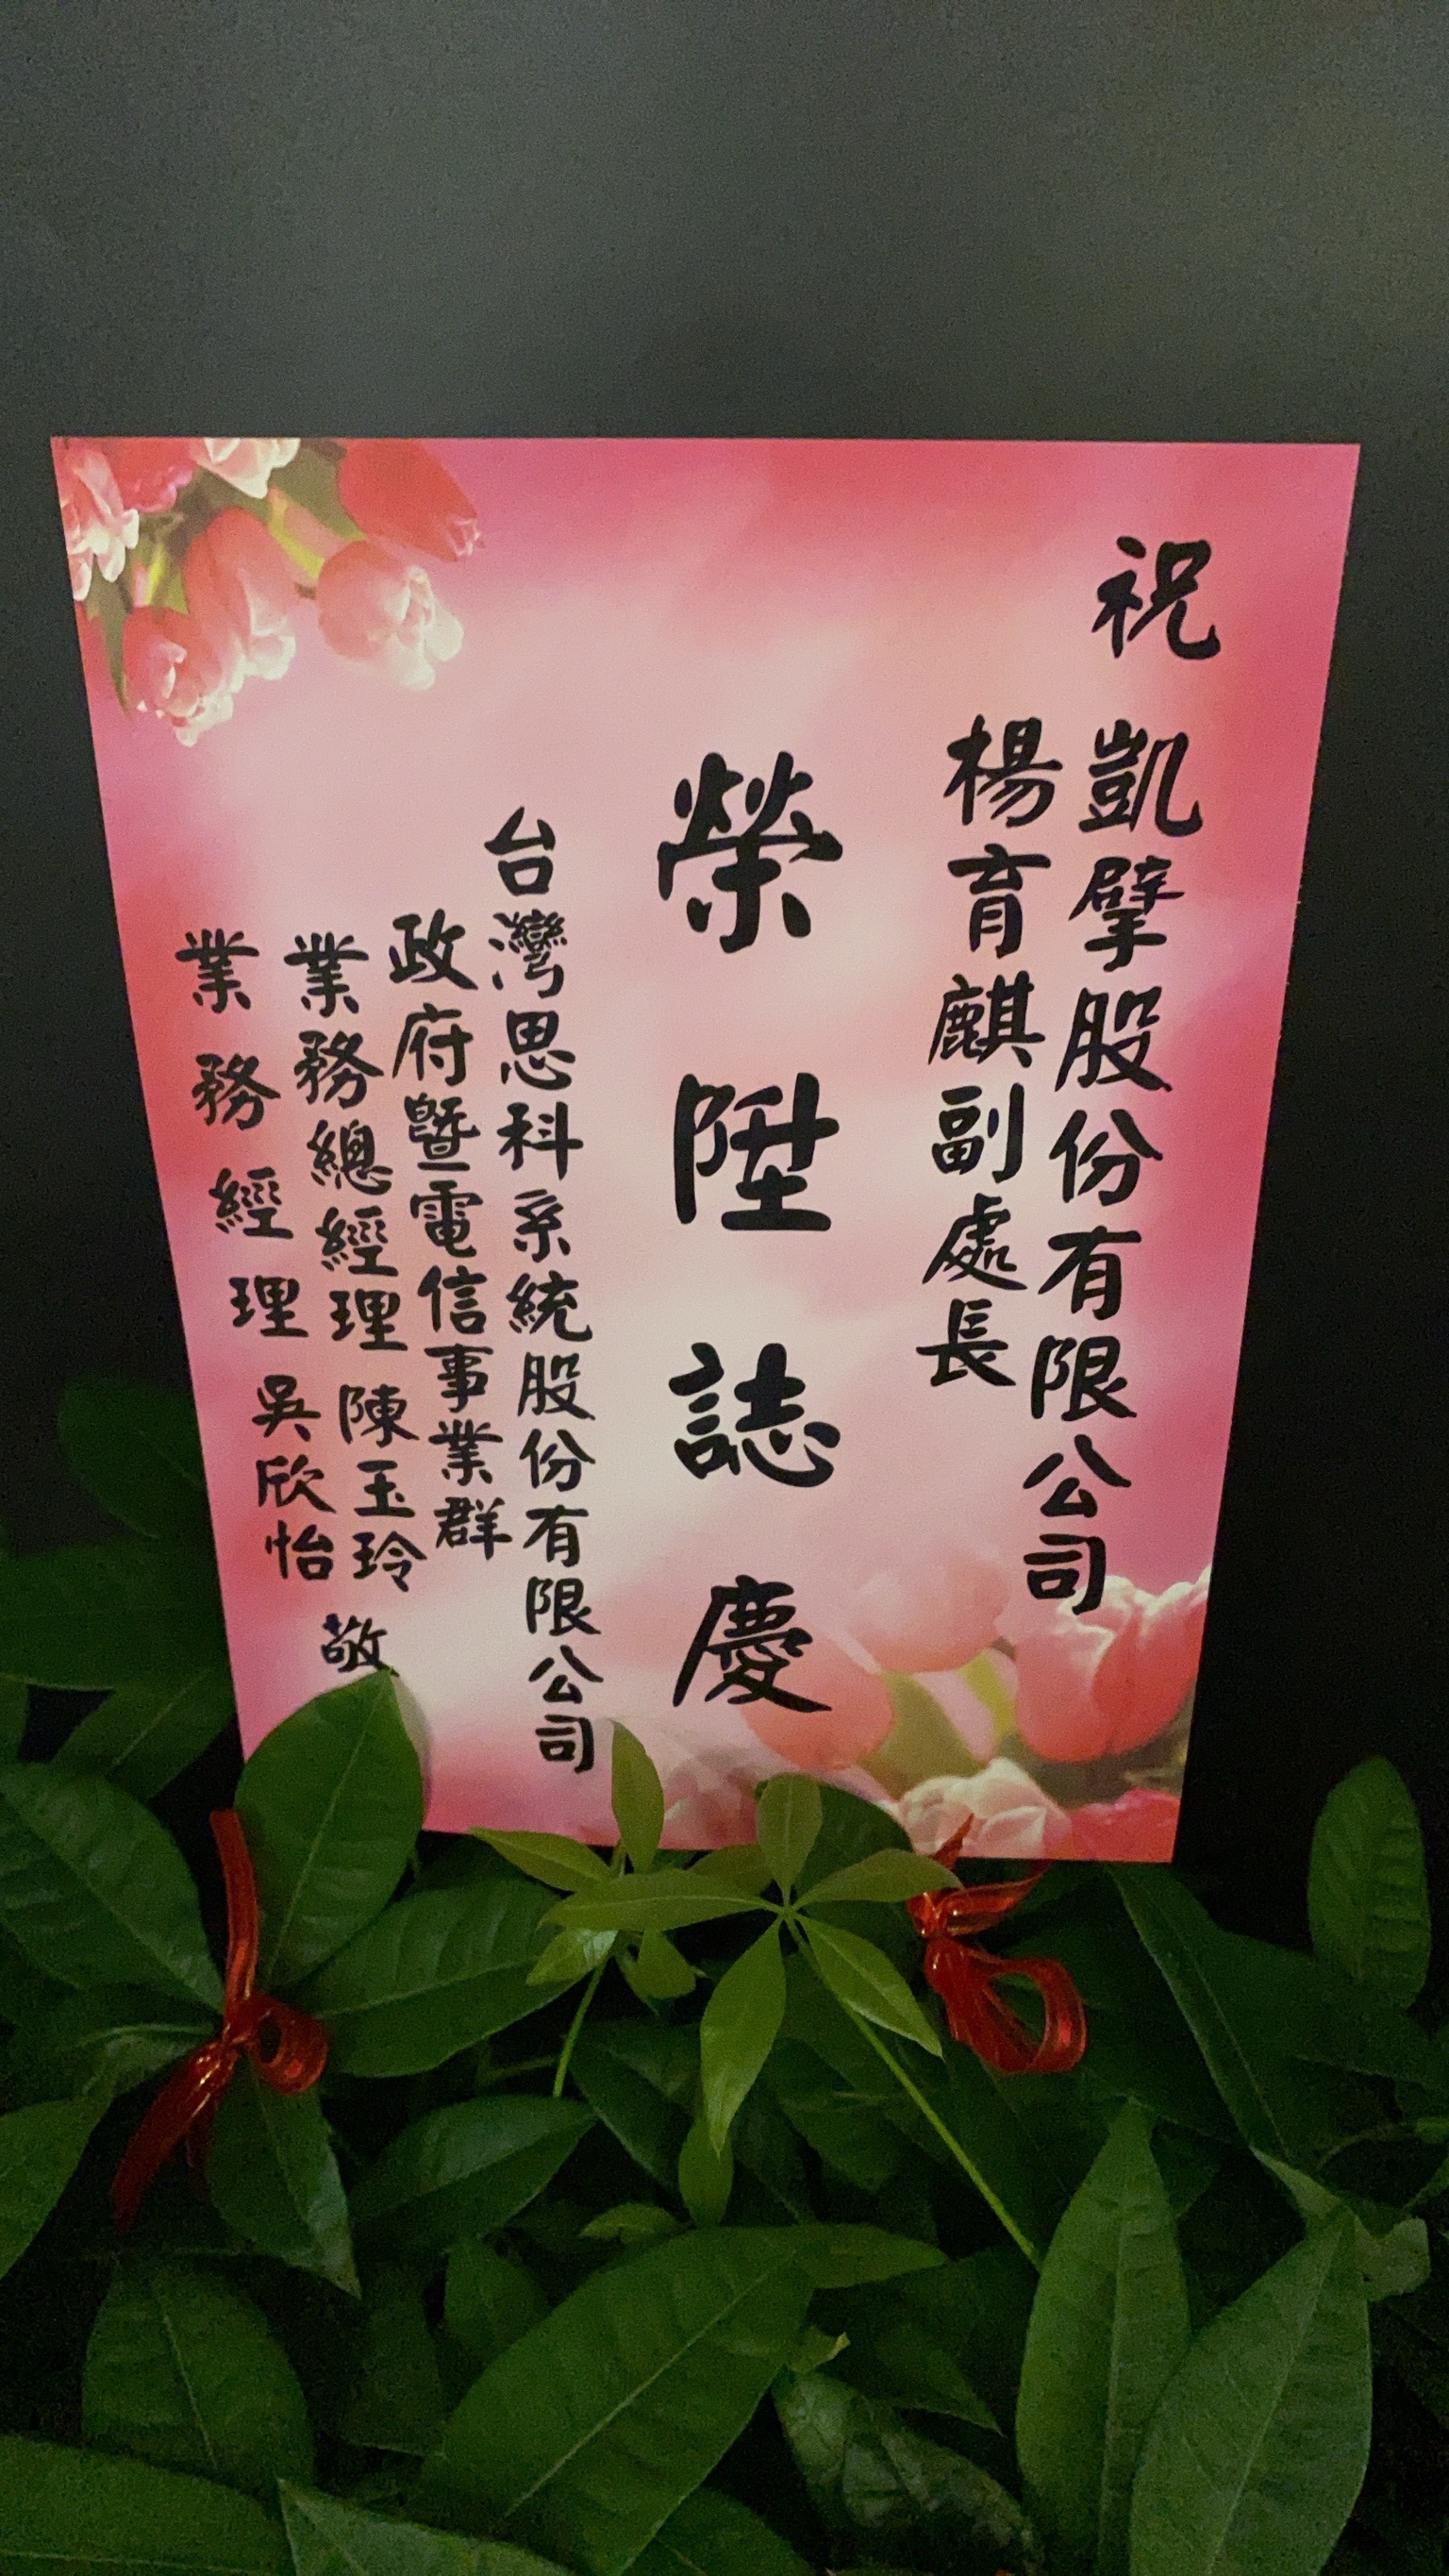 祝 凱擘股份有限公司
楊育麒副處長
榮陞誌慶
台灣思科系統股份有限公司
政府暨電信事業群
業務總經理 陳玉玲
業務經理 吳欣怡
敬